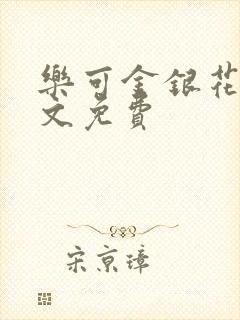 樂可金銀花
文免費
宋京璋